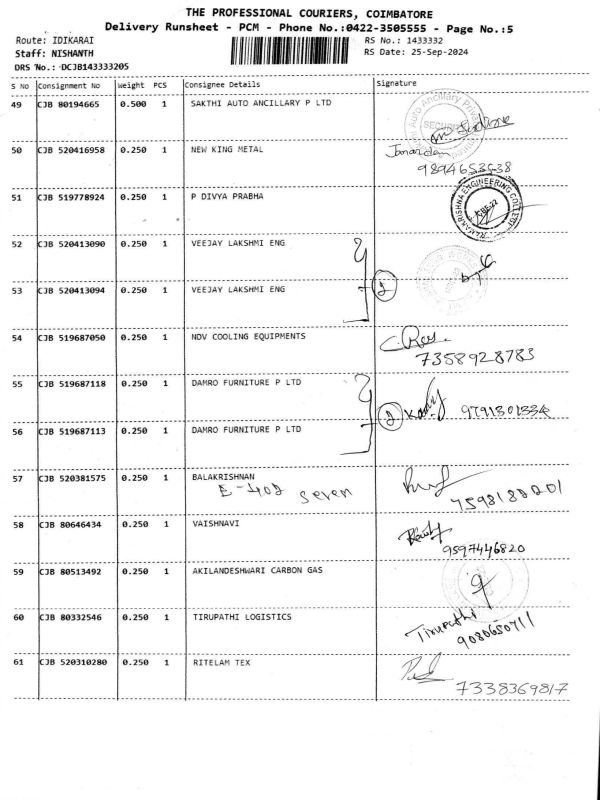 THE PROFESSIONAL COURIERS, COIMBATORE
Delivery Runsheet - PCM - Phone No.:0422-3505555 - Page No.:5
Route: IDIKARAI
RS No.: 1433332
Staff: NISHANTH
RS Date: 25-Sep-2024
DRS No.: DCJB143333205
S No Consignment No Weight PCS Consignee Details Signature
49 CJB 80194665 0.500 1 SAKTHI AUTO ANCILLARY P LTD
SECURITY
50 CJB 520416958 0.250 1 NEW KING METAL
9894653538
51 CJB 519778924 0.250 1 P DIVYA PRABHA
RAMAKRISHNA ENGINEERING COLLEGE
52 CJB 520413090 0.250 1 VEEJAY LAKSHMI ENG
2
53 CJB 520413094 0.250 1 VEEJAY LAKSHMI ENG
54 CJB 519687050 0.250 1 NDV COOLING EQUIPMENTS
7358928783
55 CJB 519687118 0.250 1 DAMRO FURNITURE P LTD
2 9791301334
56 CJB 519687113 0.250 1 DAMRO FURNITURE P LTD
57 CJB 520381575 0.250 1 BALAKRISHNAN
E-402 seven
7598188201
58 CJB 80646434 0.250 1 VAISHNAVI
9597446820
59 CJB 80513492 0.250 1 AKILANDESHWARI CARBON GAS
60 CJB 80332546 0.250 1 TIRUPATHI LOGISTICS
Tirupathi
9080650711
61 CJB 520310280 0.250 1 RITELAM TEX
7338369817